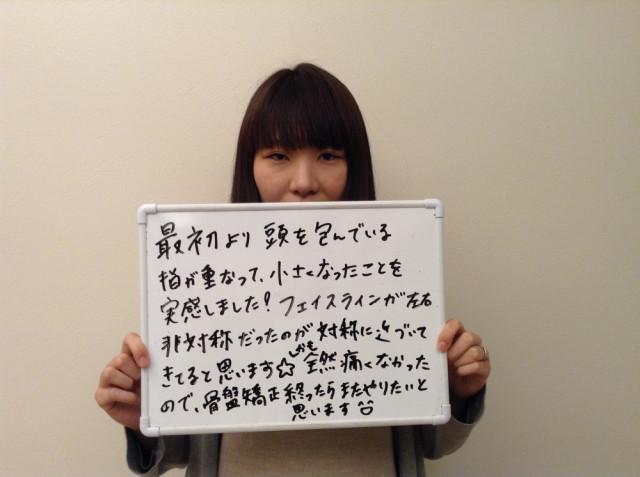 最初より 頭を包んでいる
指が重なって、小さくなったことを
実感しました！フェイスラインが左右
非対称だったのが対称に近づいて
きてると思います☆しかも全然痛くなかった
ので、骨盤矯正終ったらまたやりたいと
思います^^